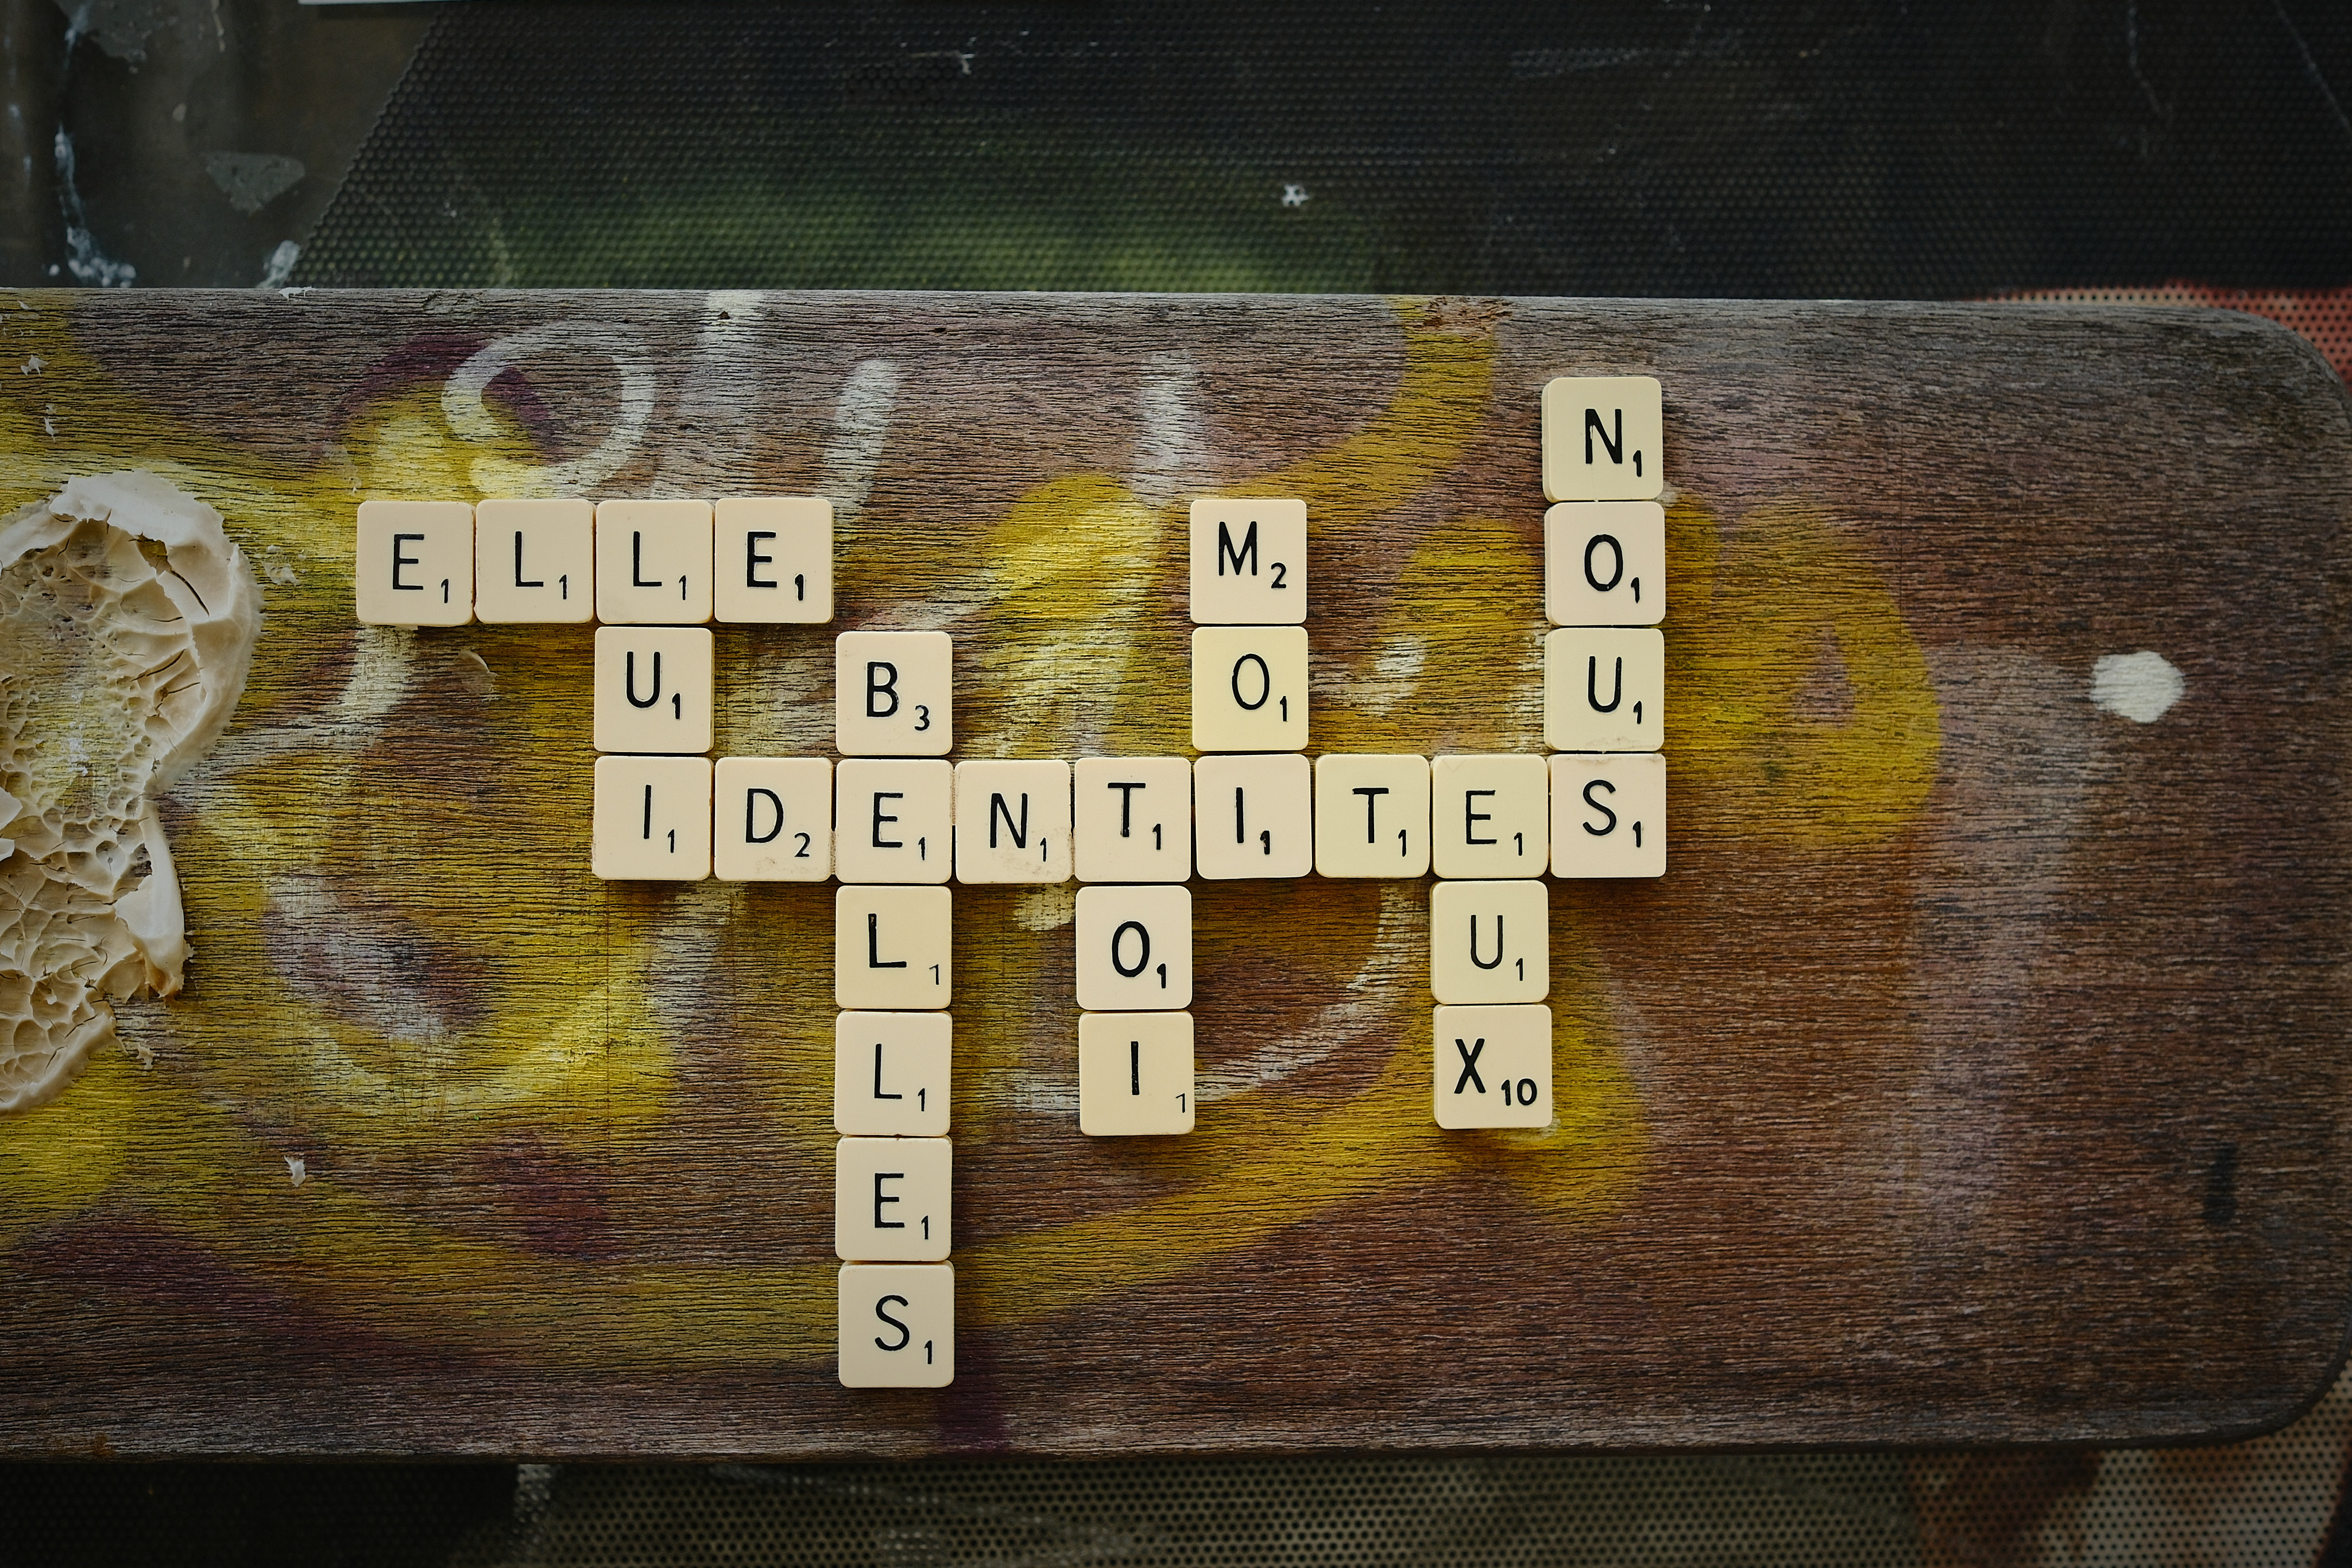 ELLE
LUI
IDENTITES
BELLES
TOI
MOI
EUX
NOUS